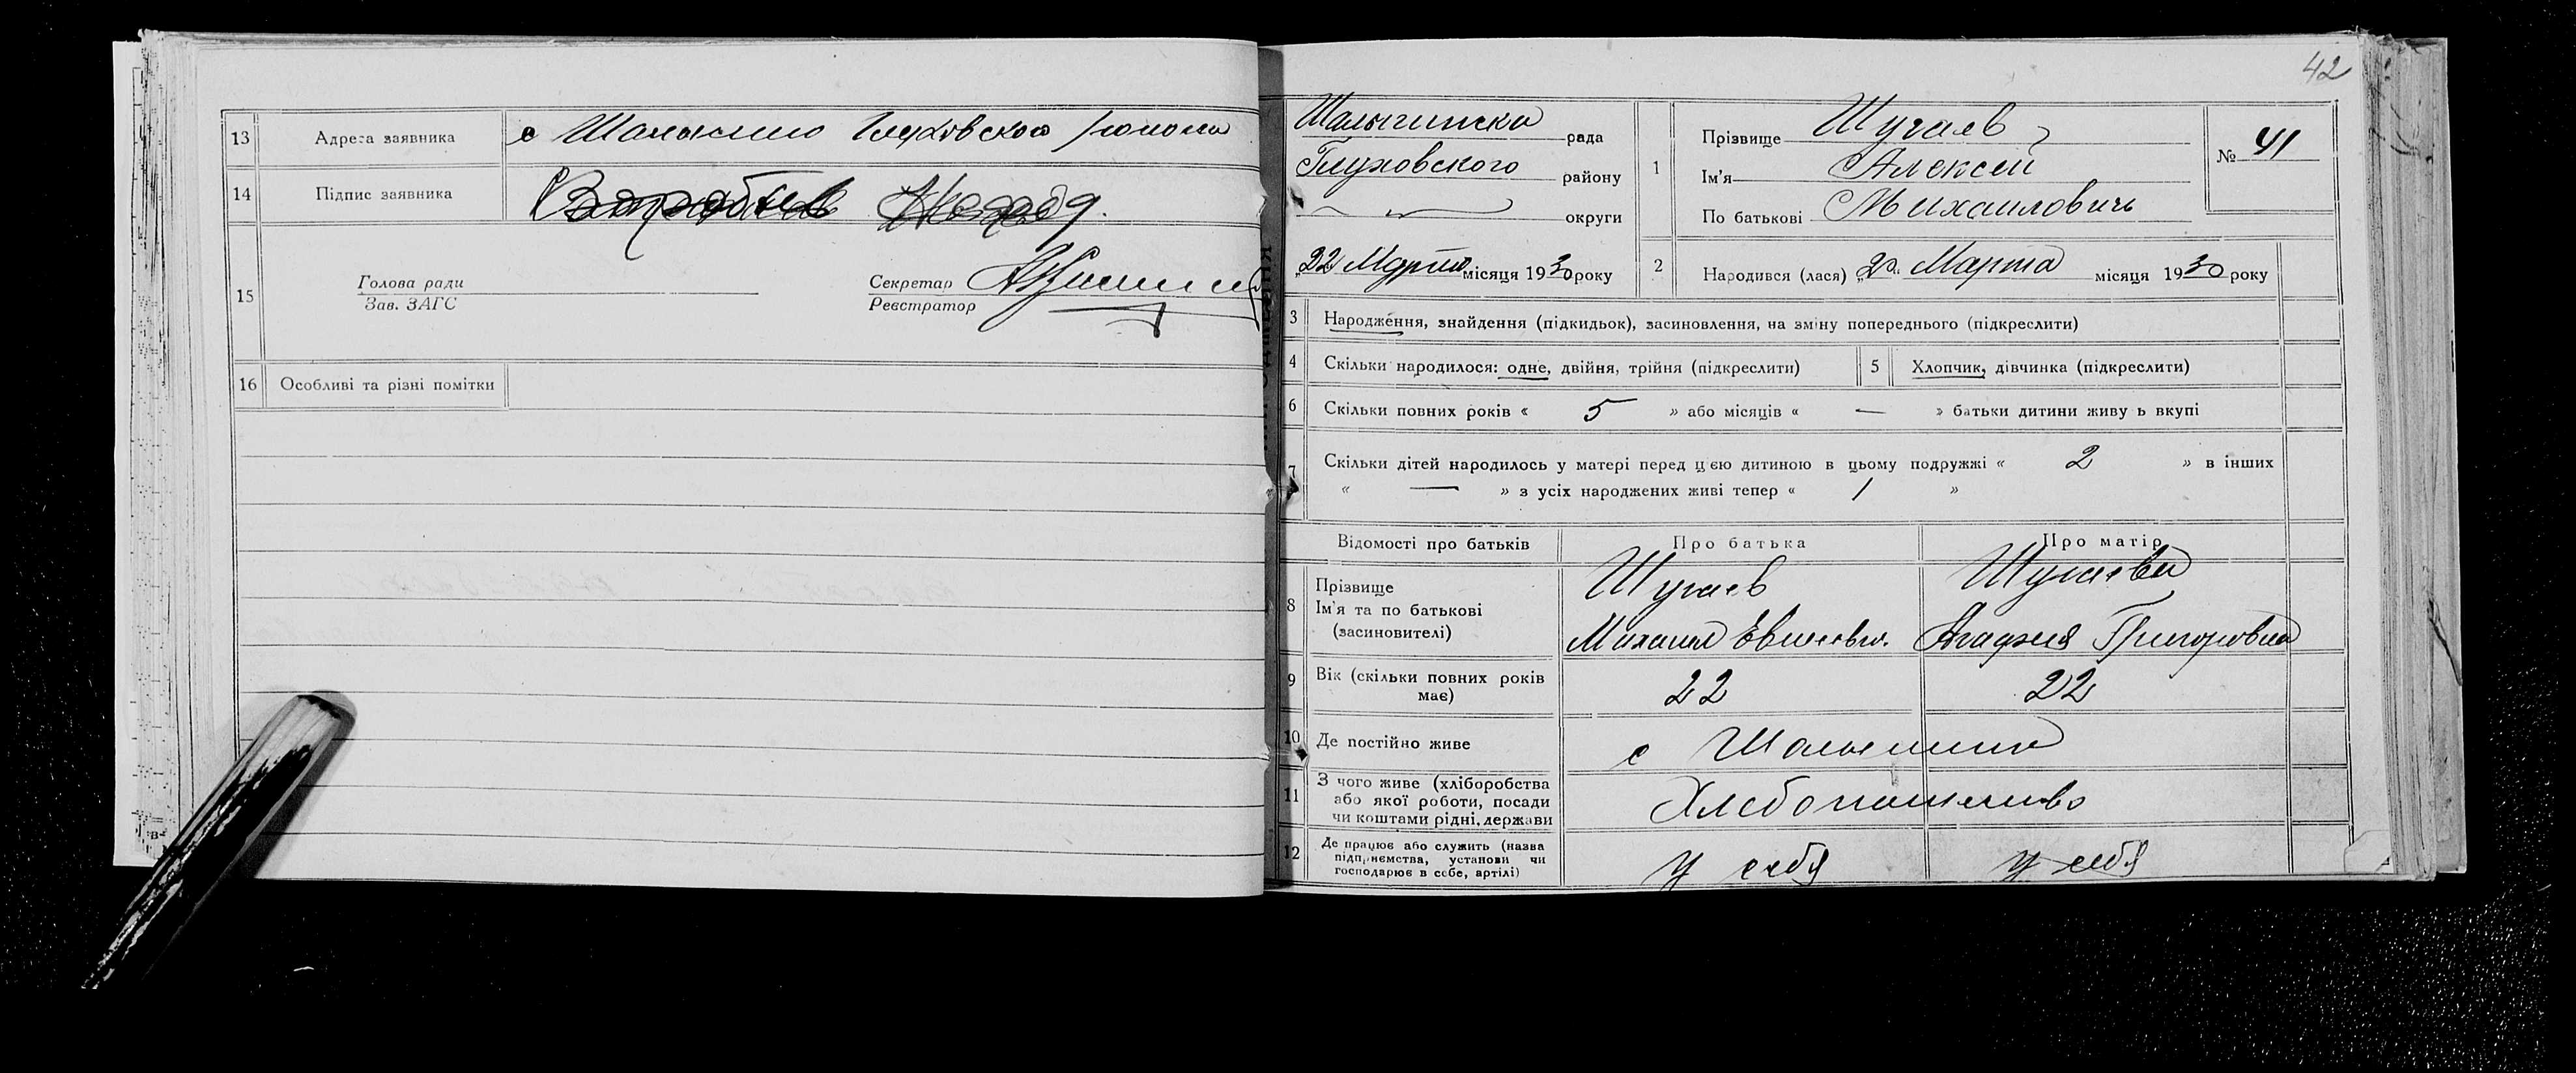 13 Адреса заявника с Шалыгино Глуховского района
14 Підпис заявника
15 Голова ради
Зав. ЗАГС
Секретар
Реєстратор
16 Особливі та різні помітки
42
Шалыгинска рада
Глуховского району
округи
22 Марта місяця 1930 року
1 Прізвище Шугаев
Ім'я Алексей
По батькові Михаиловичь
№ 41
2 Народився (лася) „20„ Марта місяця 1930 року
3 Народження, знайдення (підкидьок), засиновлення, на зміну попереднього (підкреслити)
4 Скільки народилося: одне, двійня, трійня (підкреслити)
5 Хлопчик, дівчинка (підкреслити)
6 Скільки повних років « 5 » або місяців « — » батьки дитини живу ь вкупі
7 Скільки дітей народилось у матері перед цією дитиною в цьому подружжі « 2 » в інших
« — » з усіх народжених живі тепер « 1 »
Відомості про батьків Про батька Про матір
8 Прізвище
Ім'я та по батькові
(засиновителі)
Шугаев
Михаил
Шугаева
Агафия Григоровна
9 Вік (скільки повних років
має)
22 22
10 Де постійно живе с Шалыгино
11 З чого живе (хліборобства
або якої роботи, посади
чи коштами рідні, держави
Хлебопашество
12 Де працює або служить (назва
підприємства, установи чи
господарює в себе, артілі)
у себя у себя